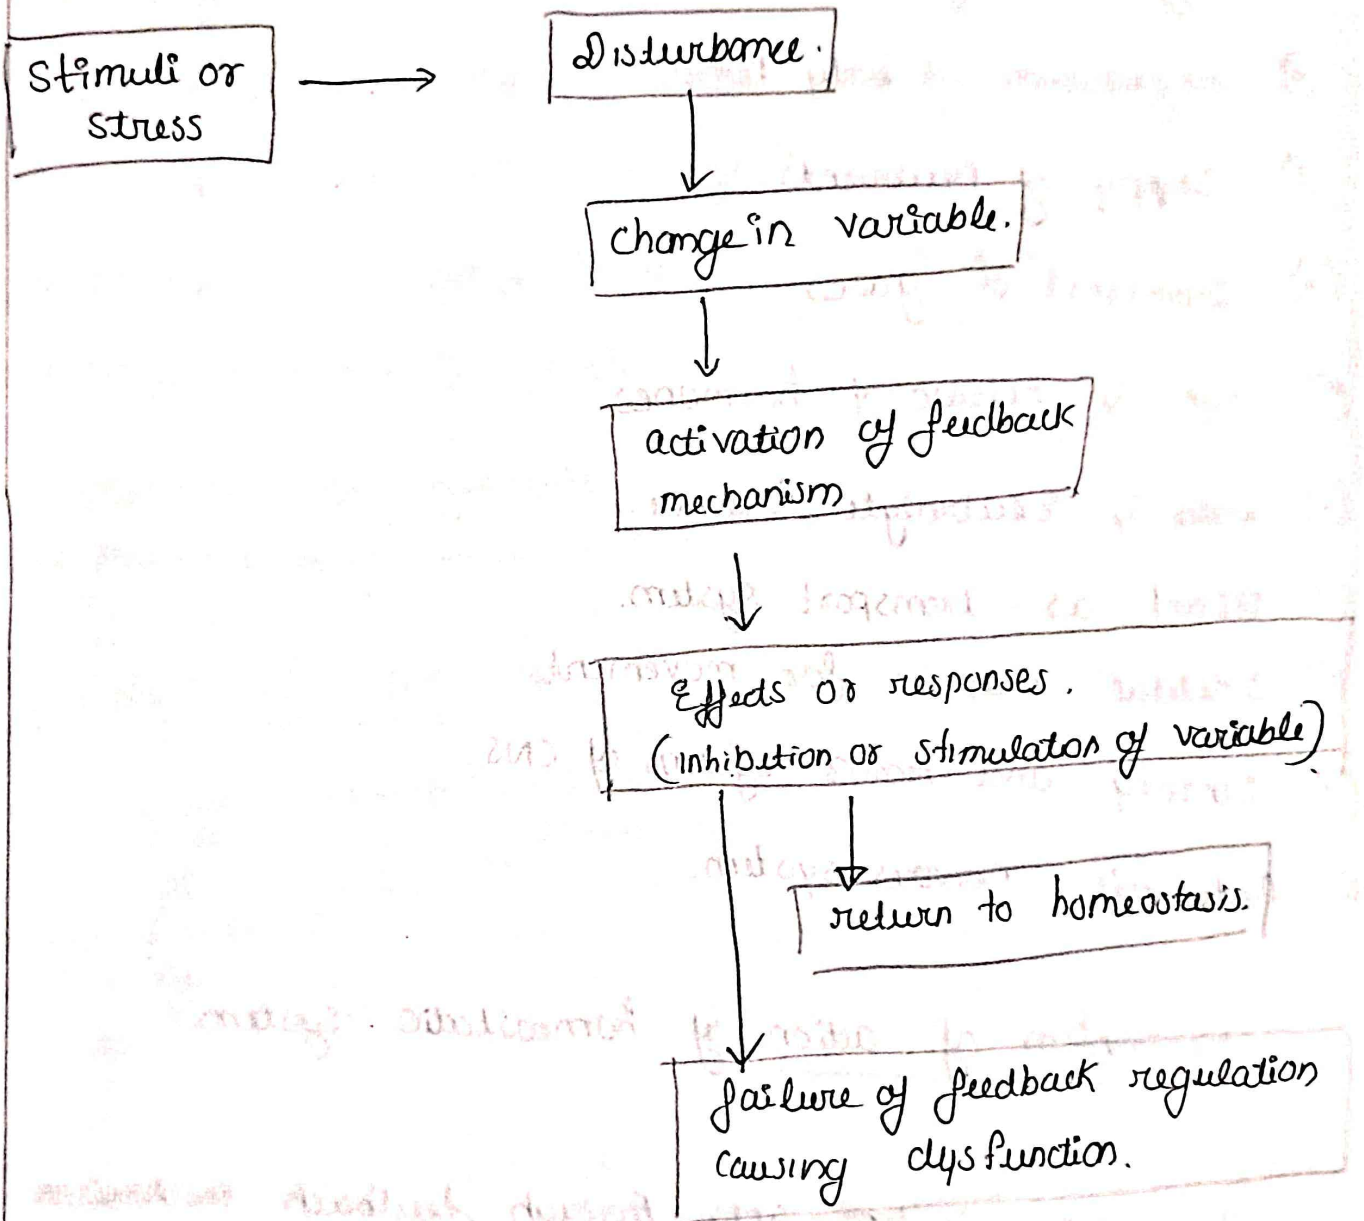 Stimuli or
stress
Disturbance.
Change in variable.
activation of feedback
mechanism
Effects or responses.
(inhibition or stimulaton of variable)
return to homeostasis.
failure of feedback regulation
causing dysfunction.